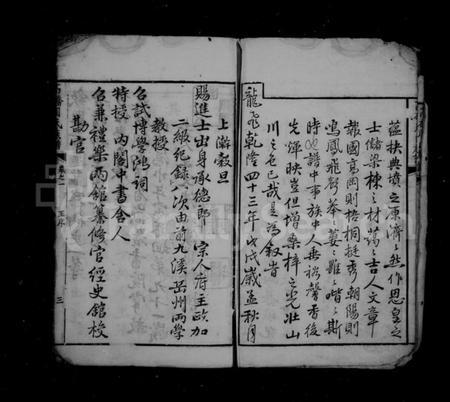 蘊挾典墳之
濟濟然作思皇之
士儲梁棟之材藹藹吉人文章
報國高岡則梧桐挺秀朝陽則
鳴鳳飛聲菶菶萋萋雝雝喈喈斯
時也譜中事族中人垂裕馨香後
先輝映豈但增桑梓之光壯山
川之色已哉是為敘昔
龍飛乾隆四十三年戊戌歲孟秋月
上澣穀旦
賜進士出身承德郎 宗人府主政加
二級紀錄八次由前九溪岳州兩學
教授
召試博學鴻詞
特授 內閣中書舍人
召兼禮樂兩館纂修官經史館校
勘官
三